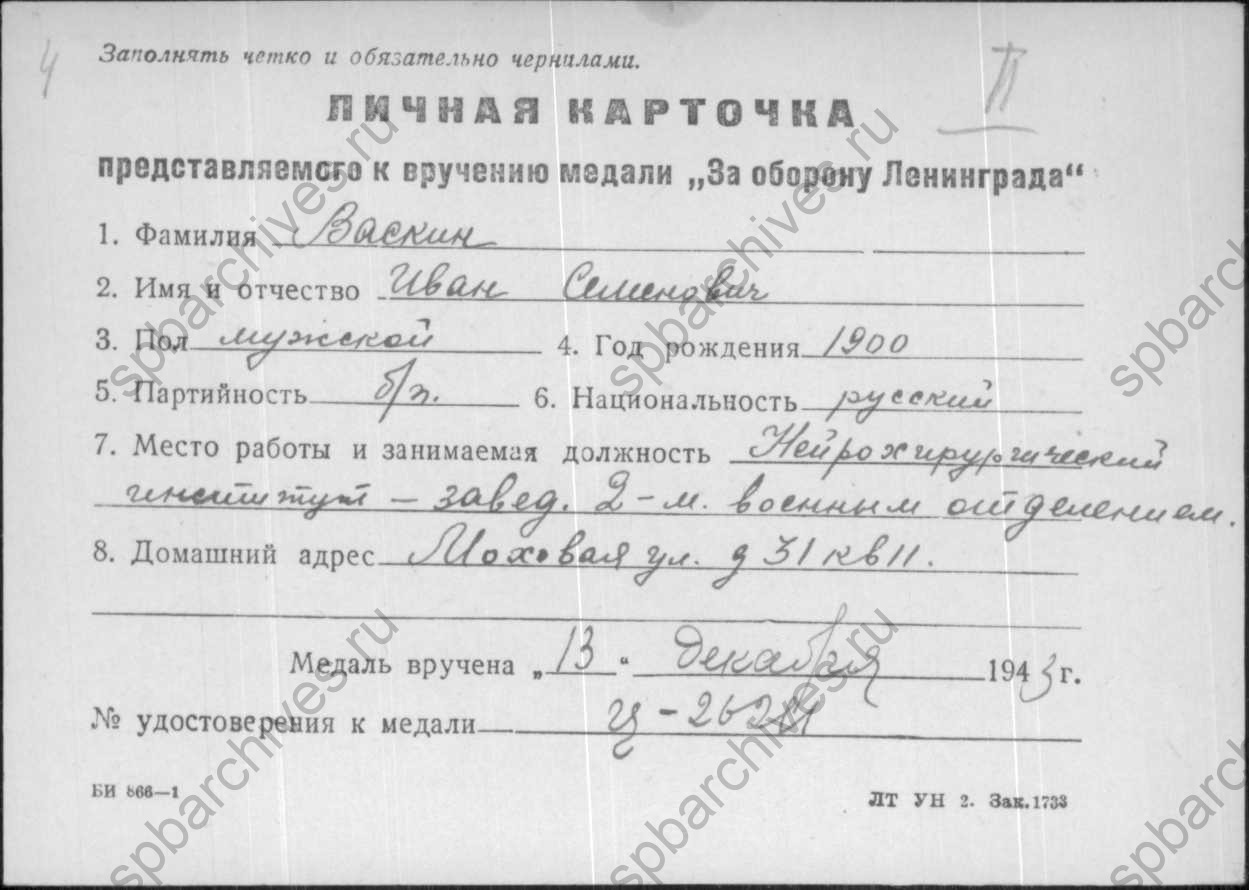 4
Заполнять четко и обязательно чернилами.
II
ЛИЧНАЯ КАРТОЧКА
представляемого к вручению медали „За оборону Ленинграда“
1. Фамилия Васкин
2. Имя и отчество Иван Семенович
3. Пол мужской 4. Год рождения 1900
5. Партийность б/п. 6. Национальность русский
7. Место работы и занимаемая должность Нейрохирургический
институт – завед. 2-м. военным отделением.
8. Домашний адрес Моховая ул. д 31 кв 11.
Медаль вручена „13“ декабря 1943 г.
№ удостоверения к медали
БИ 866—1
ЛТ УН 2. Зак. 1733
spbarchives.ru
spbarchives.ru
spbarc
spbarchives.ru
spbarchives.ru
spbarc